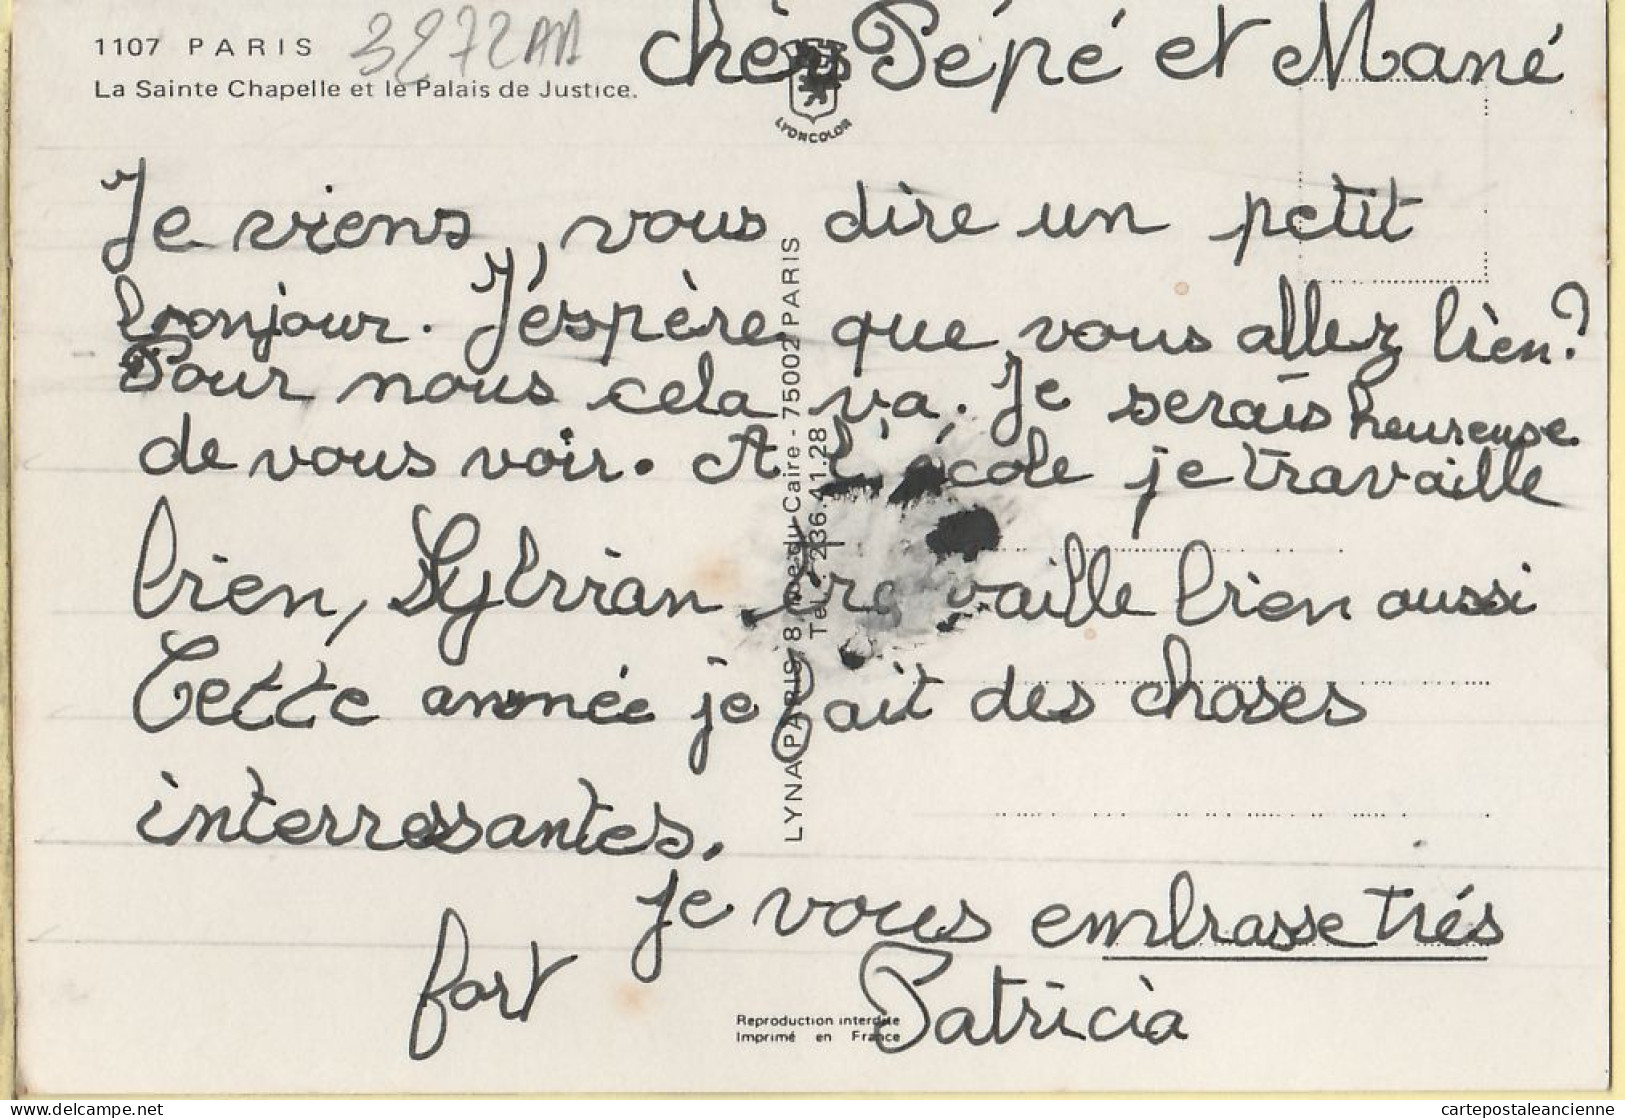 1107 PARIS
3272AA
La Sainte Chapelle et le Palais de Justice.
LYONCOLOR
chèrs Pépé et Mané
Je viens, vous dire un petit
bonjour. J'éspère que vous allez bien?
Pour nous cela va. Je serais heureuse
de vous voir. A l'école je travaille
bien, Sylvian travaille bien aussi
Cette année je fait des choses
interressantes.
Je vous embrasse trés
fort
Patricia
LYNA PARIS 8, rue du Caire - 75002 PARIS
Tel. 236.41.28
Reproduction interdite
Imprimé en France
delcampe.net
cartepostaleancienne